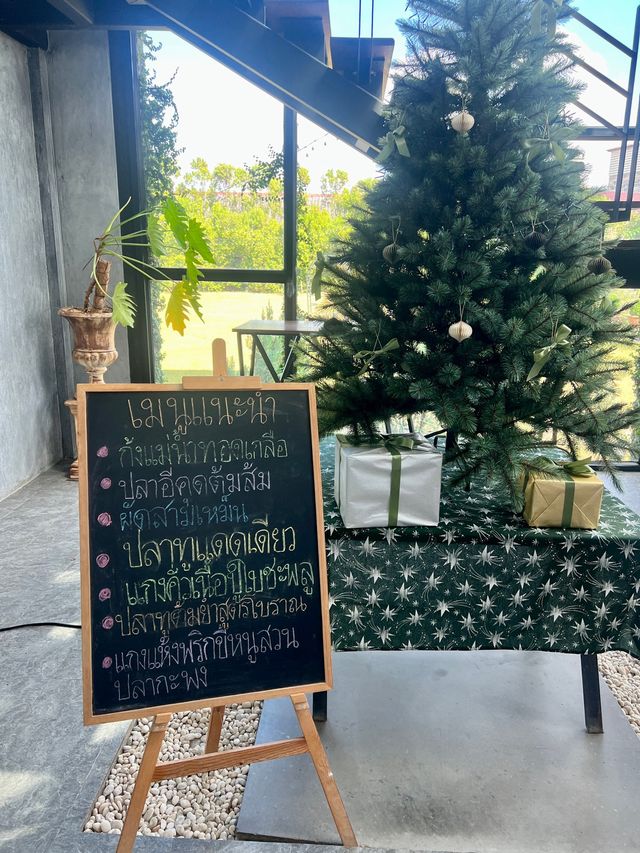 เมนูแนะนำ
กุ้งแม่น้ำทอดเกลือ
ปลาอีคุดต้มส้ม
ผัดสายเหม็น
ปลาทูแดดเดียว
แกงคั่วเนื้อปูใบชะพลู
ปลาทูต้มยำสูตรโบราณ
แกงแห้งพริกขี้หนูสวน
ปลากะพง